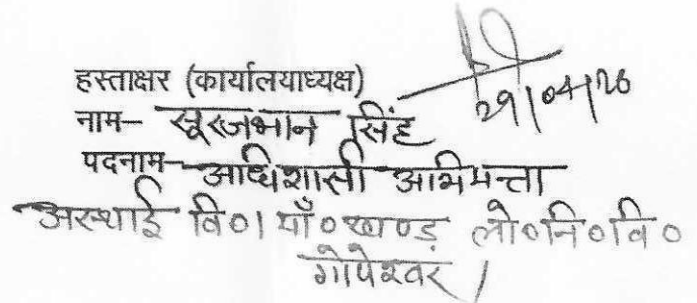 हस्ताक्षर (कार्यालयाध्यक्ष)
29/04/26
नाम– सूरजभान सिंह
पदनाम– अधिशासी अभियन्ता
अस्थाई वि०/याँ० खण्ड़ लो०नि०वि०
गोपेश्वर